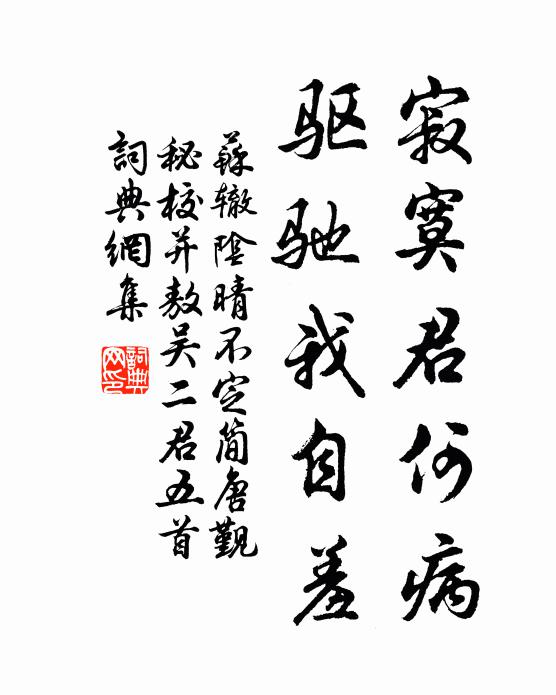 寂寞君何病
驱驰我自羞
蘇辙陰晴不定简唐觐
秘校并敖吴二君五首
詞典網集
詞典网印